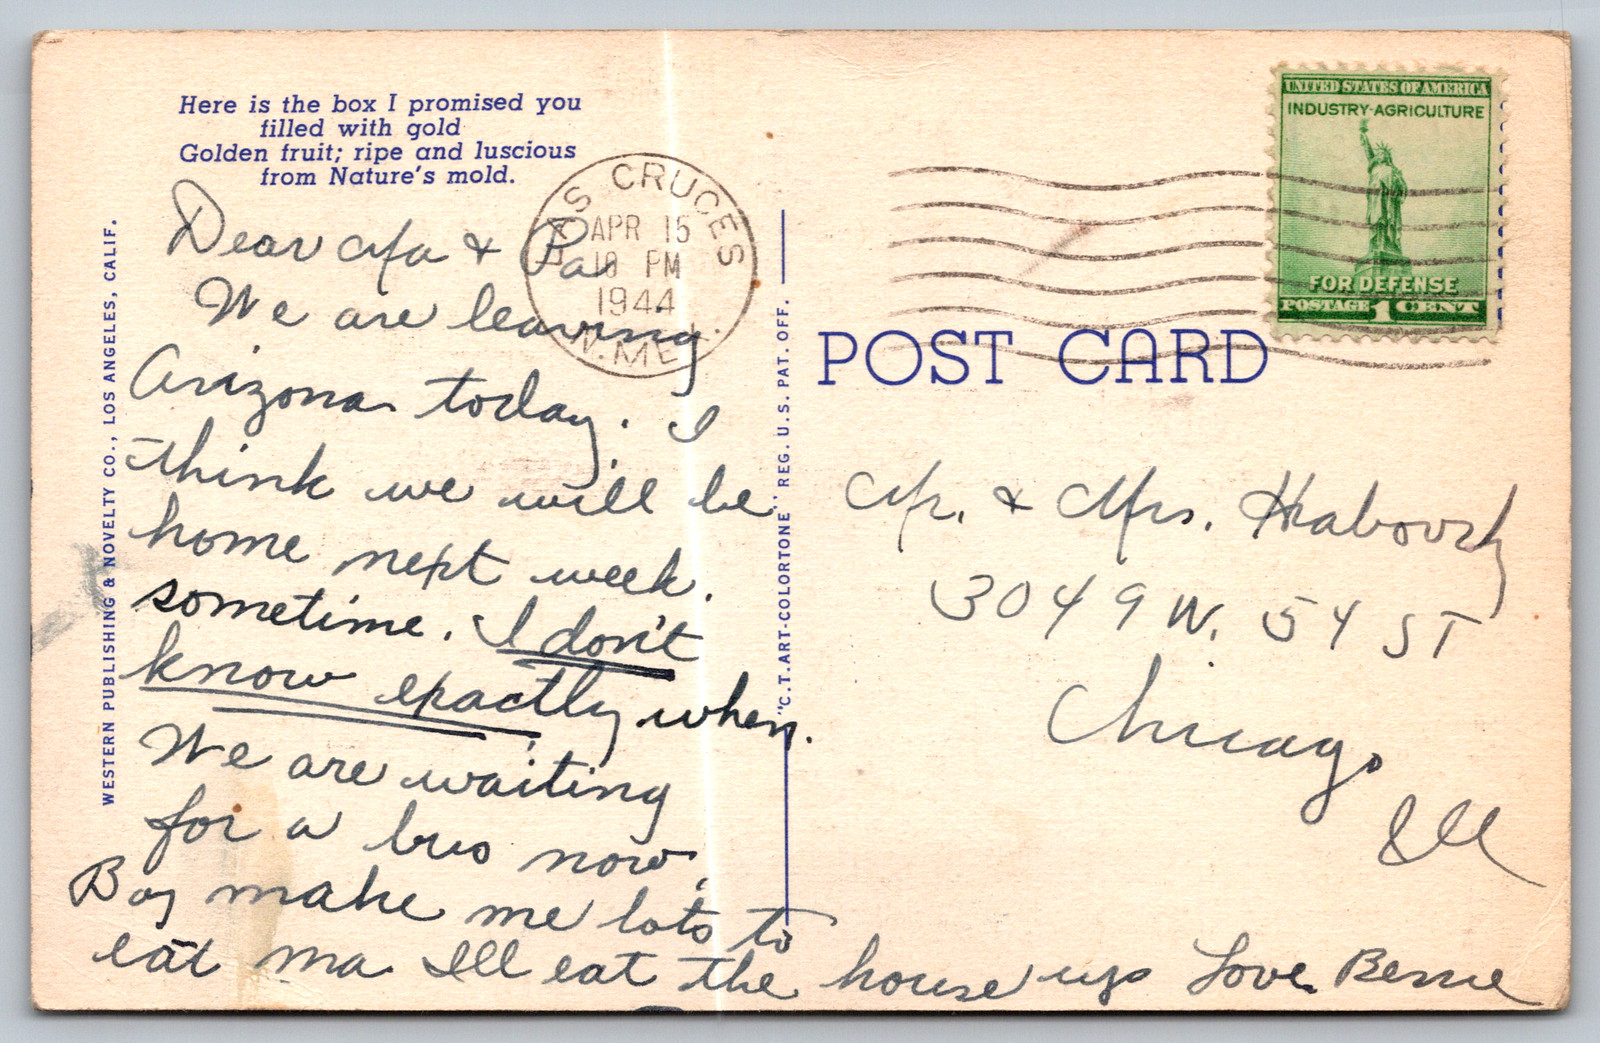 Here is the box I promised you
filled with gold
Golden fruit; ripe and luscious
from Nature's mold.
WESTERN PUBLISHING & NOVELTY CO., LOS ANGELES, CALIF.
Dear Ma & Pa
We are leaving
Arizona today. I
think we will be
home next week.
sometime. I don't
know exactly when.
We are waiting
for a bus now.
Boy make me lots to
eat ma I'll eat the house up Love Bernie
LAS CRUCES
APR 15
10 PM
1944
N. MEX.
"C.T. ART-COLORTONE" REG. U.S. PAT. OFF.
POST CARD
UNITED STATES OF AMERICA
INDUSTRY-AGRICULTURE
FOR DEFENSE
POSTAGE 1 CENT
Mr. & Mrs.
3049 W. 54 ST
Chicago
Ill